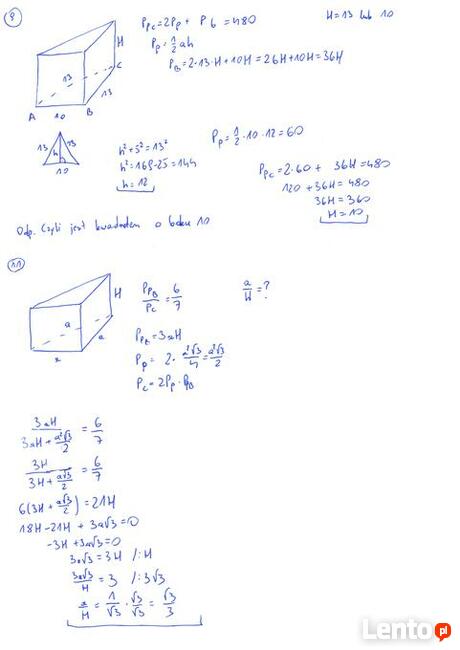 9
P_pc = 2P_p + P_b = 480
H = 13 lub 10
P_p = 1/2 ah
P_B = 2·13·H + 10H = 26H + 10H = 36H
H
13
C
13
A 10 B
13 h 13
10
h² + 5² = 13²
h² = 169 - 25 = 144
h = 12
P_p = 1/2 · 10 · 12 = 60
P_pc = 2·60 + 36H = 480
120 + 36H = 480
36H = 360
H = 10
Odp. Czyli jest kwadratem o boku 10
11
H
a
a
a
P_PB/P_C = 6/7
a/H = ?
P_PB = 3aH
P_p = 2 · a²√3/4 = a²√3/2
P_C = 2P_p · P_B
3aH/(3aH + a²√3/2) = 6/7
3H/(3H + a√3/2) = 6/7
6(3H + a√3/2) = 21H
18H - 21H + 3a√3 = 0
-3H + 3a√3 = 0
3a√3 = 3H /:H
3a√3/H = 3 /:3√3
a/H = 1/√3 · √3/√3 = √3/3
Lento pl